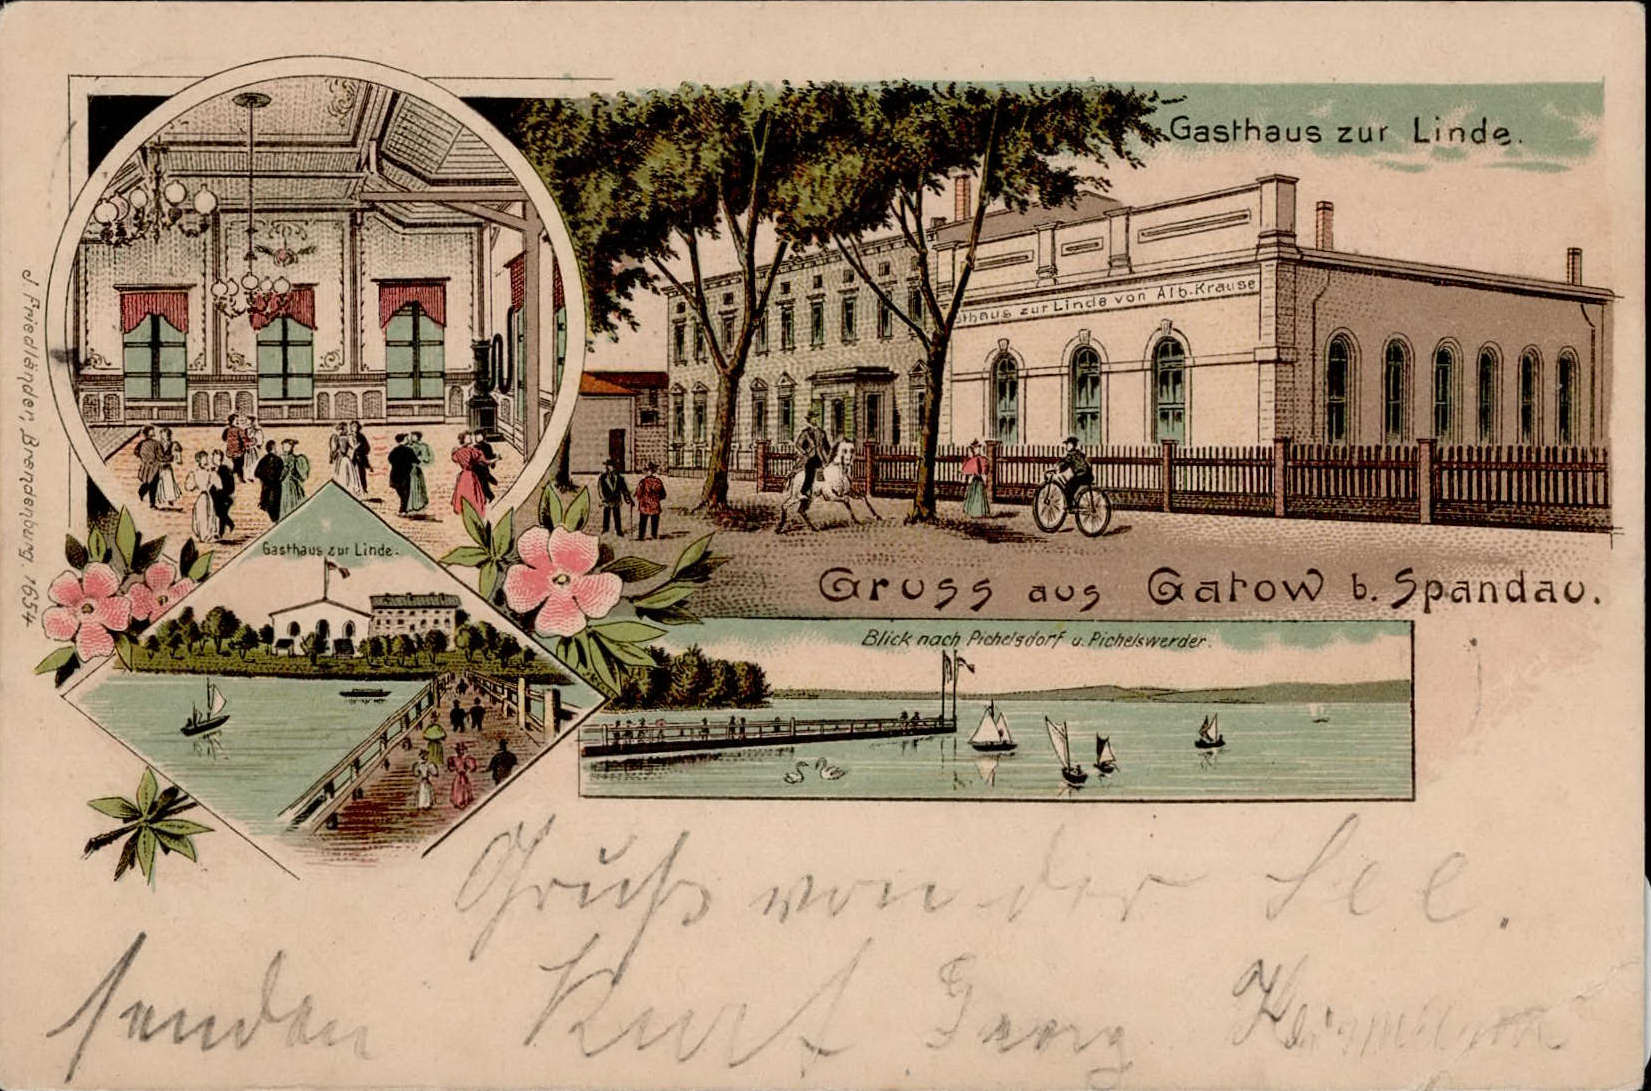 Gasthaus zur Linde.
sthaus zur Linde von Alb. Krause
Gasthaus zur Linde.
Gruss aus Gatow b. Spandau.
Blick nach Pichelsdorf u. Pichelswerder.
J. Friedländer, Brendenburg. 1654.
Gruß von der See.
senden Kurt Georg